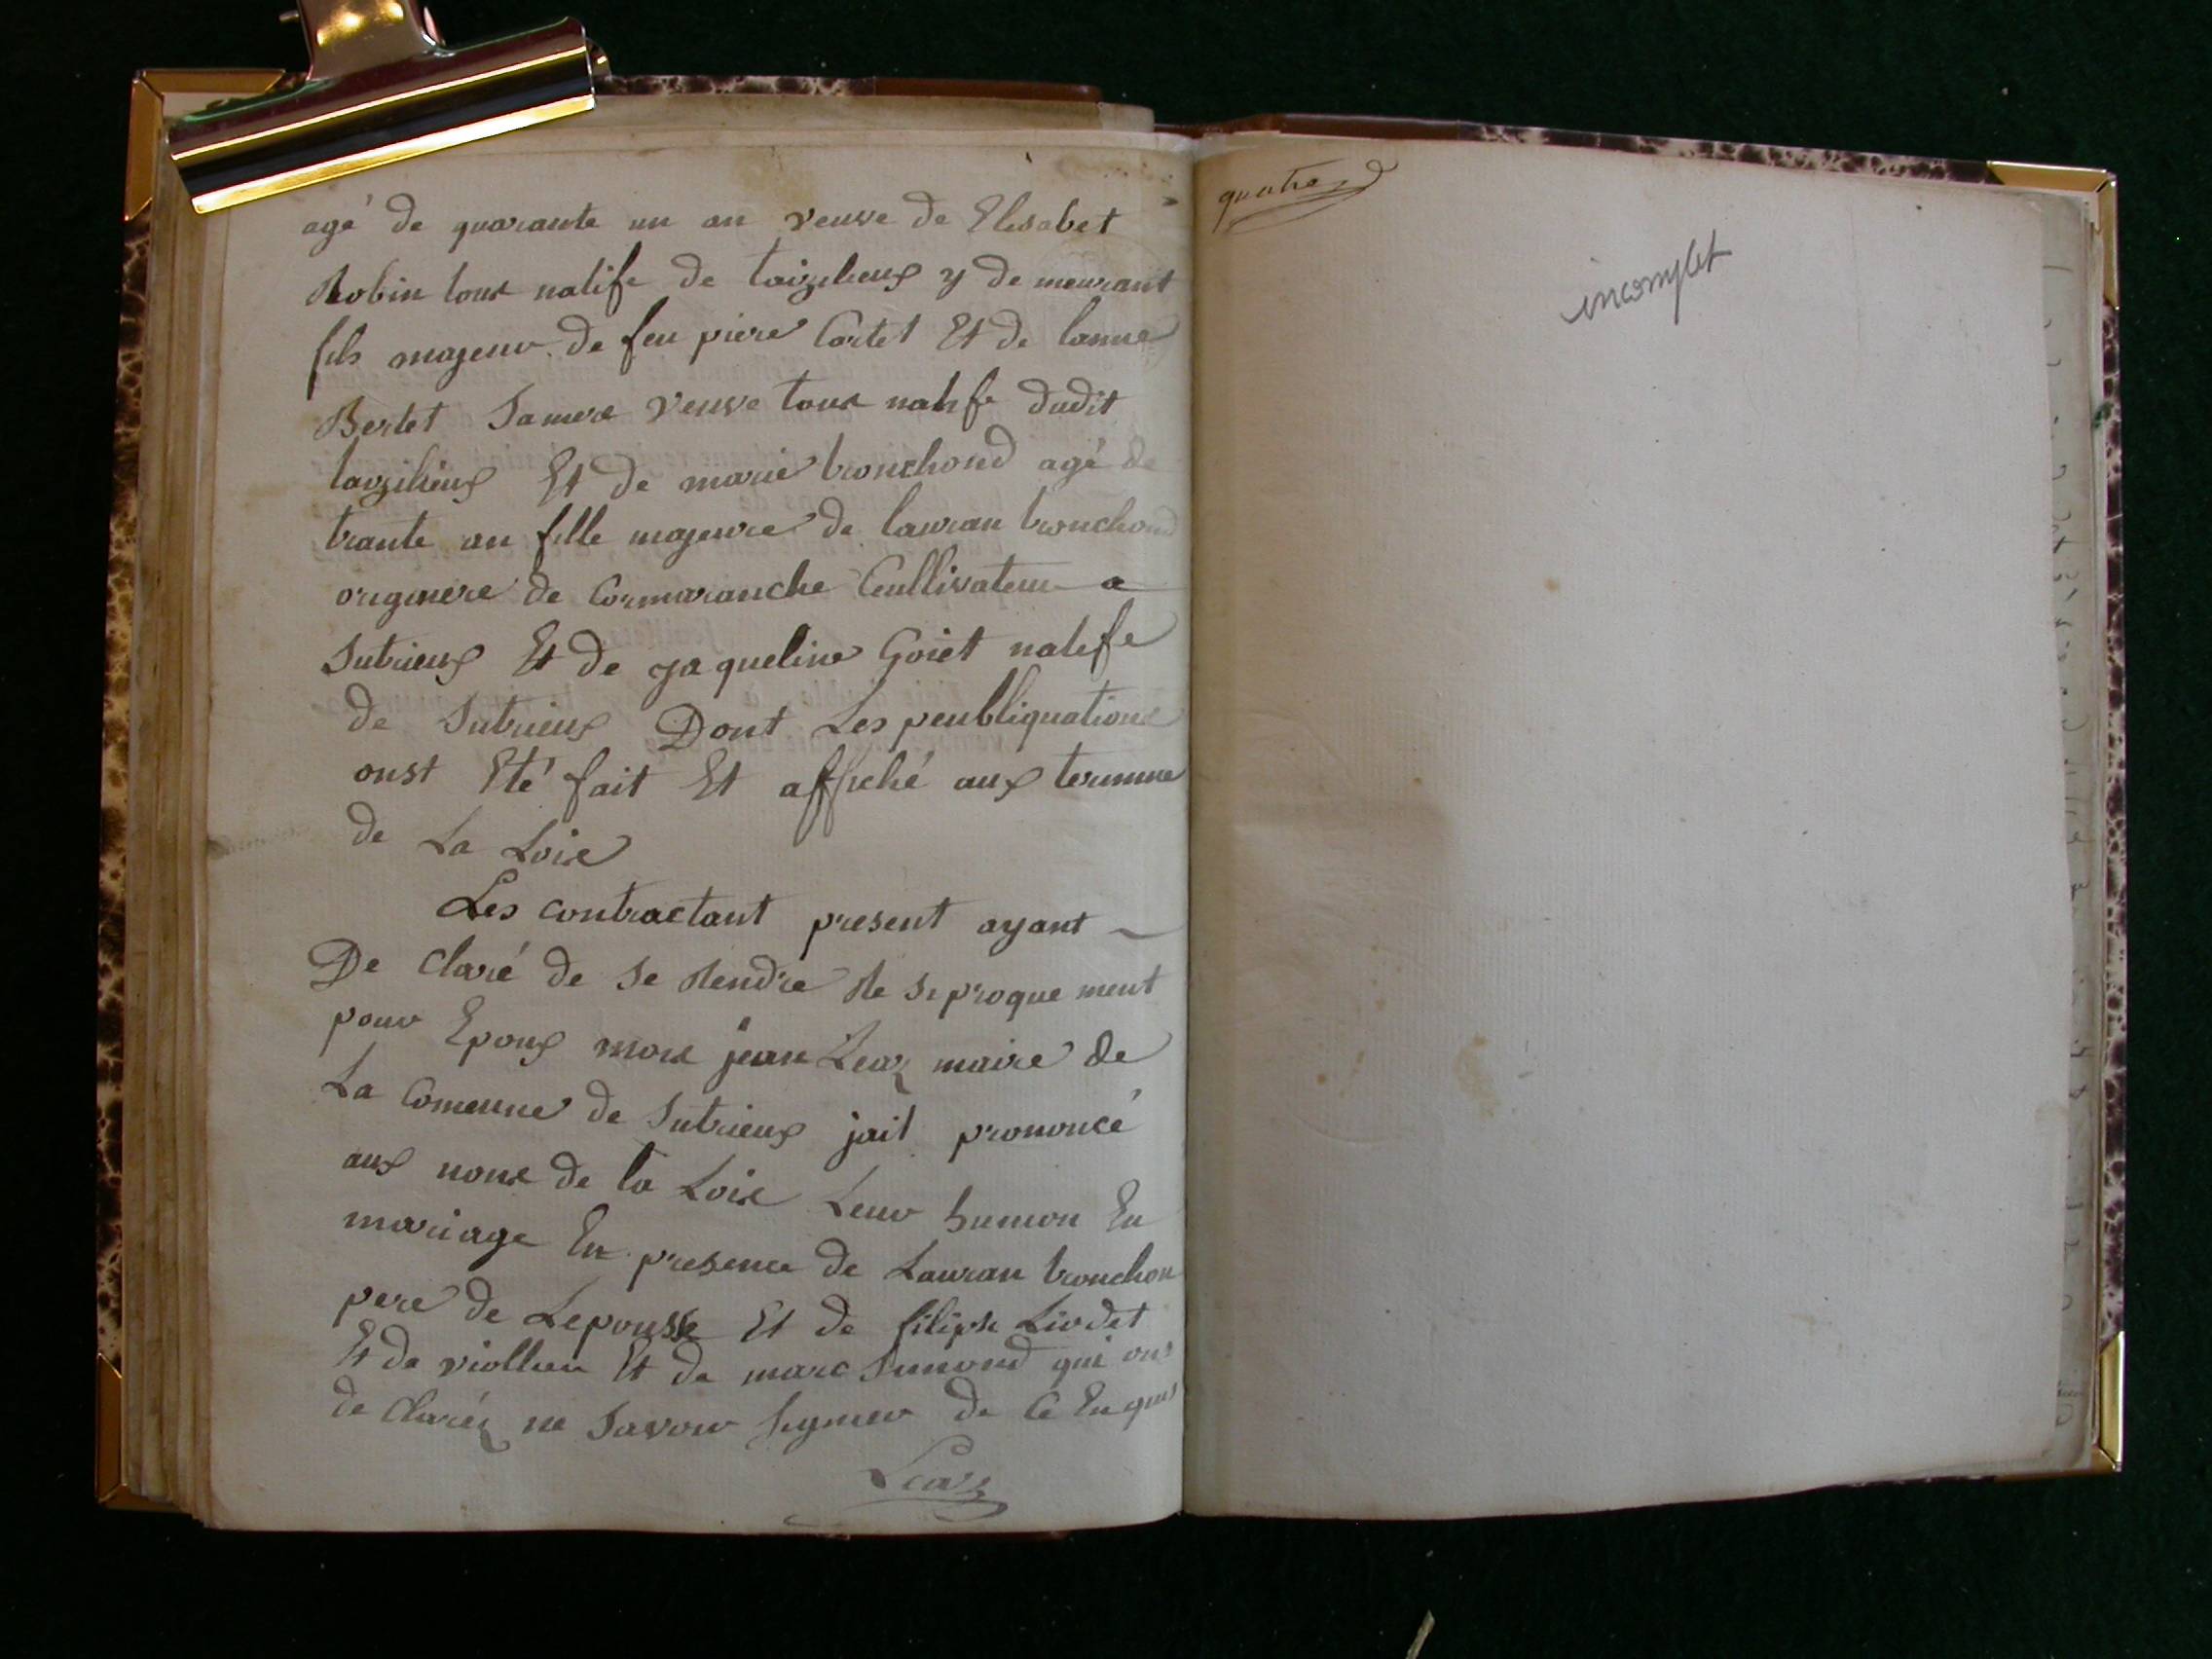 agé de quarante un an veuve de Elisabet
Robin tous natife de y de meurant
fils majeur de feu piere Cartet Et de lanne
Bertet Samere veuve tous natife dudit
Et de marie tronchond agé de
trante an fille majeure de lauran tronchond
originere de Cormaranche Cullivateur a
Sutrieux Et de jaqueline Goiet natife
de Sutrieux Dont Les peubliquations
onst Eté fait Et affiché aux termme
de La Loix
Les contractant present ayant
De Claré de Se Rendre Re siproque ment
pour Epoux mois jean Lear maire de
La Comeune de Sutrieux jait prononcé
aux nons de la Loix Leur hunion En
mariage En presence de Lauran tronchon
pere de Lepousse Et de filipe Liodet
Et de viollieu Et de marc qui ons
de Claréz ne Savoir signier de Ce Enquis
Lear
quatre
incomplet